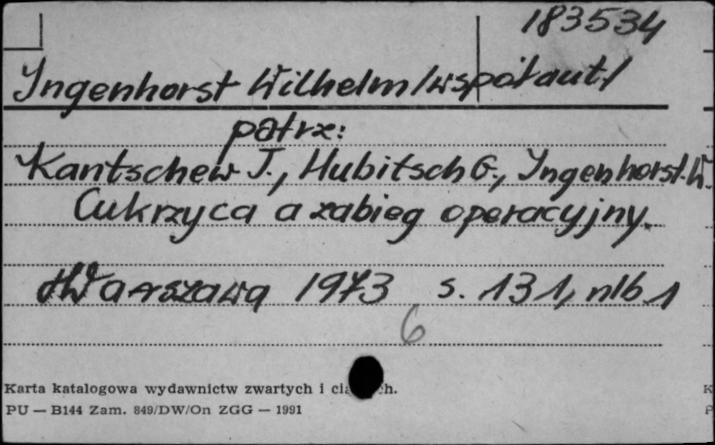 183534
Ingenhorst Wilhelm /współaut./
patrz:
Kantschew J., Hubitsch G., Ingenhorst. W.
Cukrzyca a zabieg operacyjny.
Warszawa 1973 s. 131, nlb 1
6
Karta katalogowa wydawnictw zwartych i h.
PU — B144 Zam. 849/DW/On ZGG — 1991